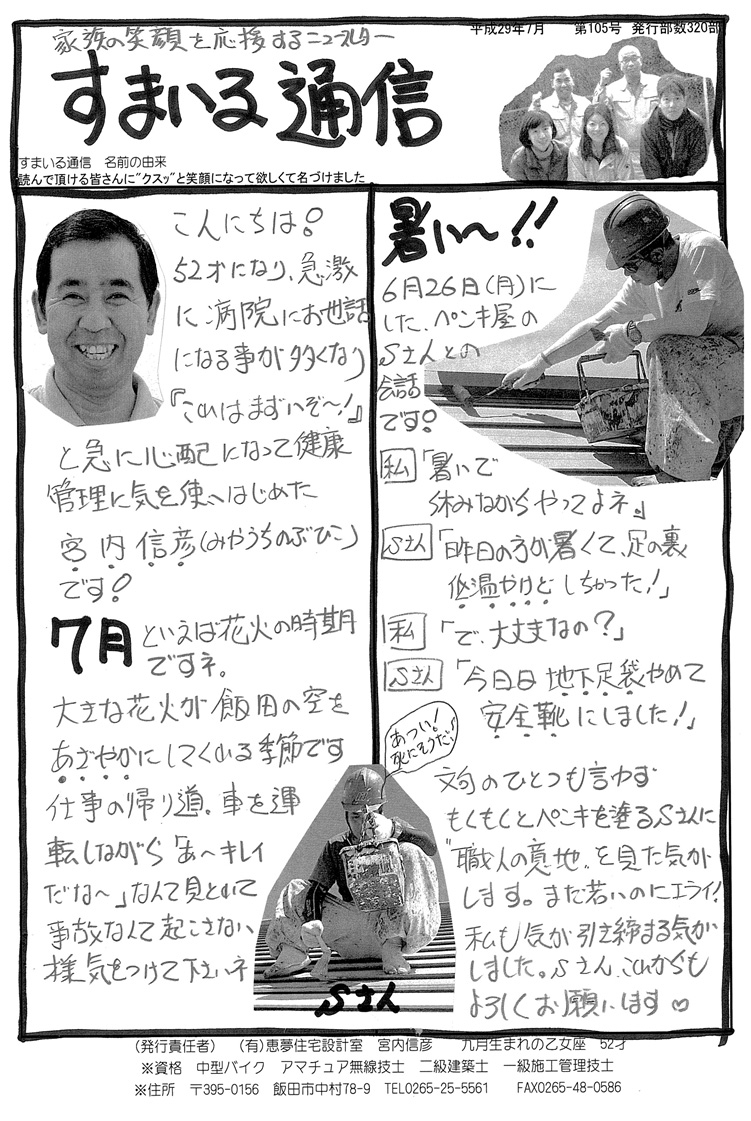 家族の笑顔を応援するニュースレター
平成29年7月　第105号　発行部数320部
すまいる通信
すまいる通信　名前の由来
読んで頂ける皆さんに"クスッ"と笑顔になって欲しくて名づけました
こんにちは!
52才になり、急激
に病院にお世話
になる事が多くなり
『これはまずいぞ〜!』
と急に心配になって健康
管理に気を使いはじめた
宮内信彦(みやうちのぶひこ)
です!
7月といえば花火の時期
ですネ。
大きな花火が飯田の空を
あざやかにしてくれる季節です
仕事の帰り道。車を運
転しながら「あ〜キレイ
だな〜」なんて見とれて
事故なんて起こさない
様気をつけて下さいネ
暑い〜!!
6月26日(月)に
した、ペンキ屋の
Sさんとの
会話
です!
私「暑いで
休みながらやってよネ。」
Sさん「昨日の方が暑くて、足の裏
低温やけどしちゃった!」
私「で、大丈夫なの?」
Sさん「今日は地下足袋やめて
安全靴にしました!」
あつい!
死にそうだ♪
文句のひとつも言わず
もくもくとペンキを塗るSさんに
"職人の意地"を見た気が
します。まだ若いのにエライ!
私も気が引き締まる気が
しました。Sさん、これからも
よろしくお願いします♡
Sさん
(発行責任者)　(有)恵夢住宅設計室　宮内信彦　　九月生まれの乙女座　52才
※資格　中型バイク　アマチュア無線技士　二級建築士　一級施工管理技士
※住所　〒395-0156　飯田市中村78-9　TEL0265-25-5561　　FAX0265-48-0586